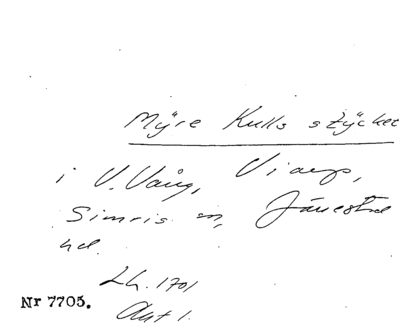 Mÿre Kulls stÿcket
i V. Vång, Viarp,
Simris sn, Järrestad
hd.
Lh. 1701
Akt 1.
Nr 7705.